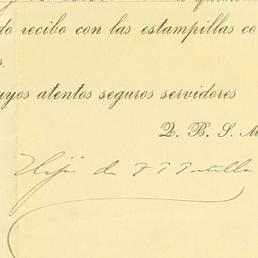 do recibo con las estampillas co
s.
uyos atentos seguros servidores
Q. B. S. M
Hijos de